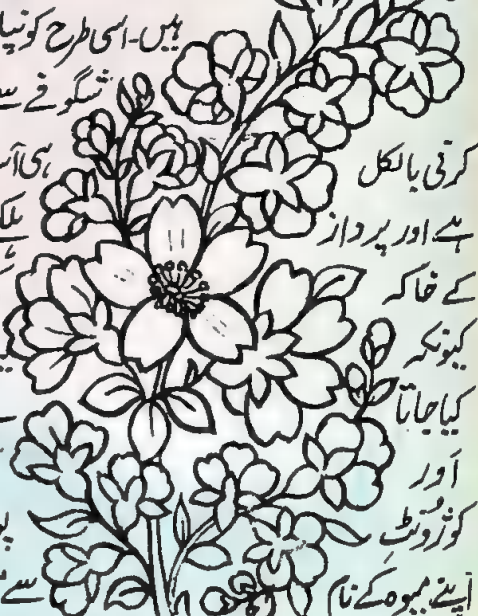 ہیں۔ اسی طرح کونپا
شگوفے سے
کرتی بالکل
ہی آ
ہے اور پرواز
ہلکا
کے خاکہ
کیونکہ
کیا جاتا
اَور
کوژرویٹِ
اَپنے میوہ کے نام
سے